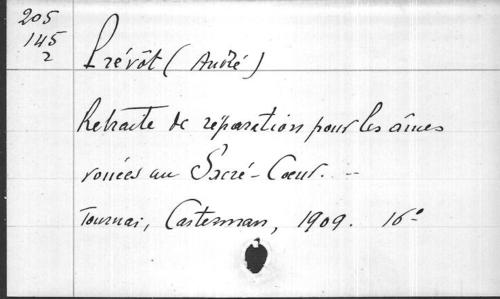 205
145
2
Prévôt (André)
Retraite de réparation pour les âmes
vouées au Sacré-Coeur. --
Tournai, Casterman, 1909. 16°